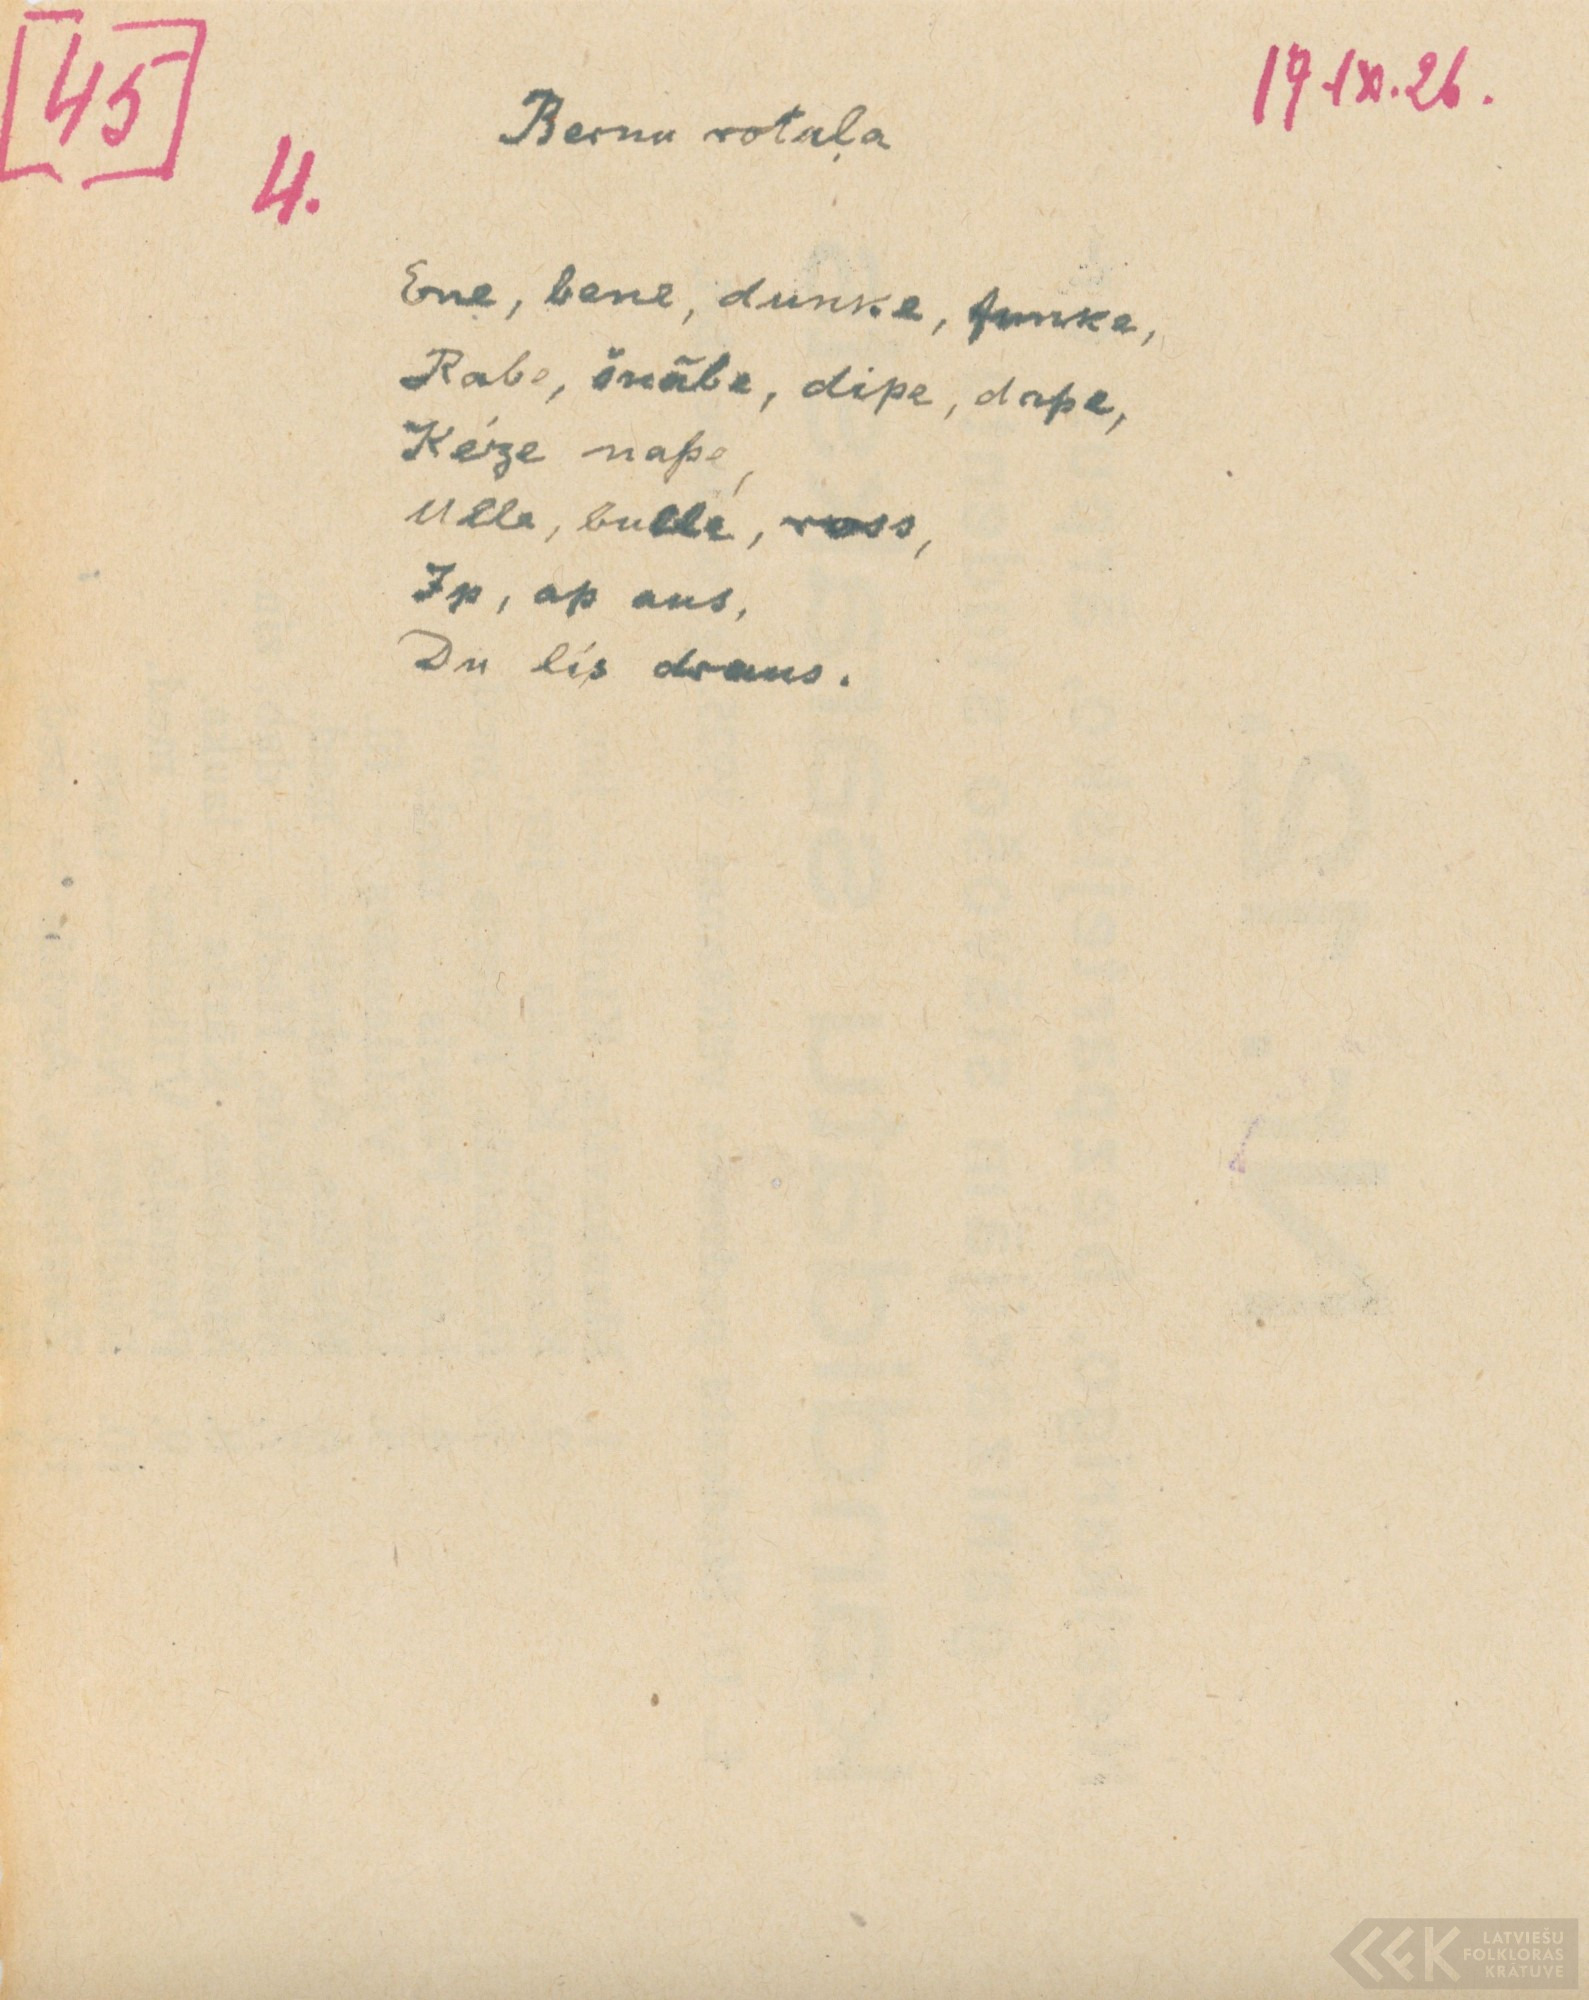 [45]
19.IX.26.
4.
Bernu rotaļa
Ene, bene, dunke, funke,
Rabe, šnābe, dipe, dape,
Kéze nape,
Ulle, bulle, ross,
Ip, ap aus,
Du lis draus.
LATVIEŠU
FOLKLORAS
KRĀTUVE